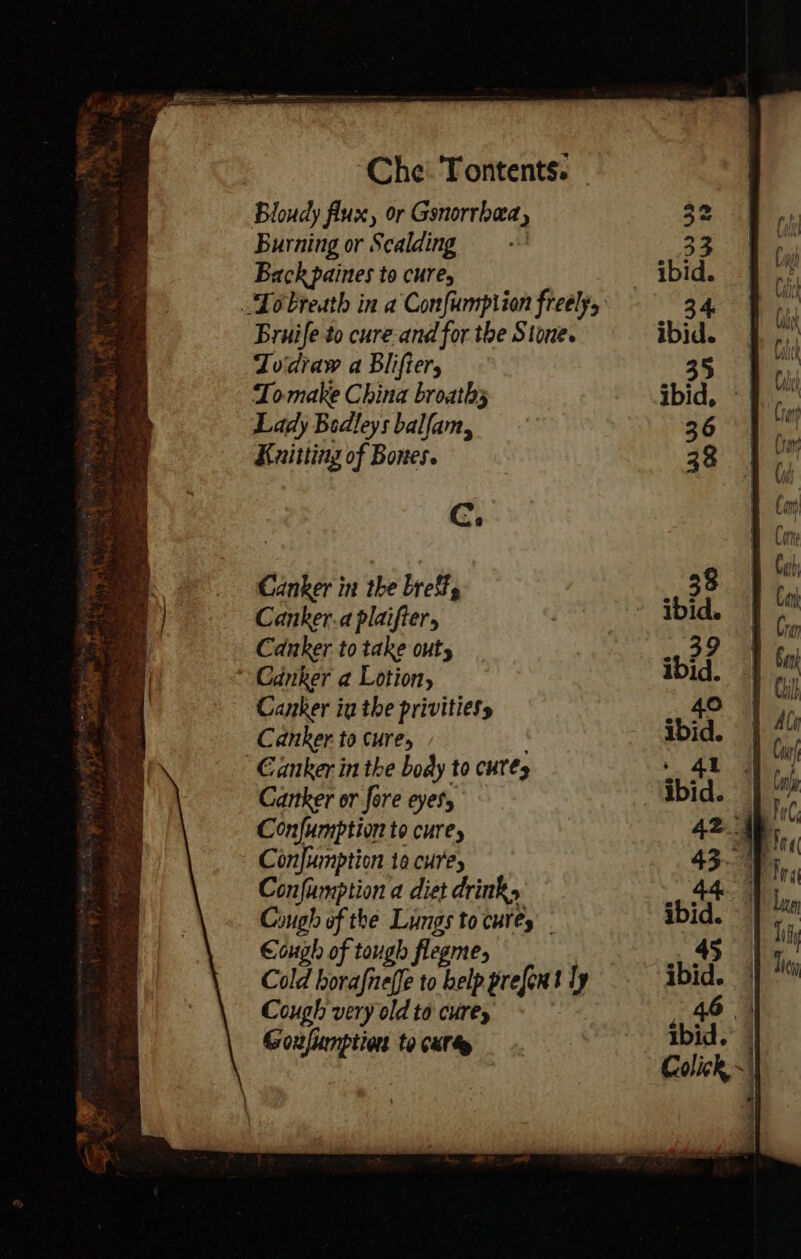 Che Tontents.
Bloudy flux, or Gonorrhœa, 32
Burning or Scalding 33
Back paines to cure, ibid.
To breath in a Conſumption freely, 34
Bruiſe to cure and for the Stone. ibid.
To draw a Bliſter, 35
To make China broaths ibid,
Lady Bodleys balſam, 36
Knitting of Bones. 38
C.
Canker in the breſt, 38
Canker a plaiſter, ibid.
Canker to take out, 39
Canker a Lotion, ibid.
Canker in the privities, 40
Canker to cure, ibid.
Canker in the body to cure, 41
Canker or ſore eyes, ibid.
Conſumption to cure, 42
Conſumption to cure, 43
Conſumption a diet drink, 44
Cough of the Lungs to cure, ibid.
Cough of tough flegme, 45
Cold horaſneſſe to help preſent ly ibid.
Cough very old to cure, 46
Conſumption to cure, ibid.
Colick,